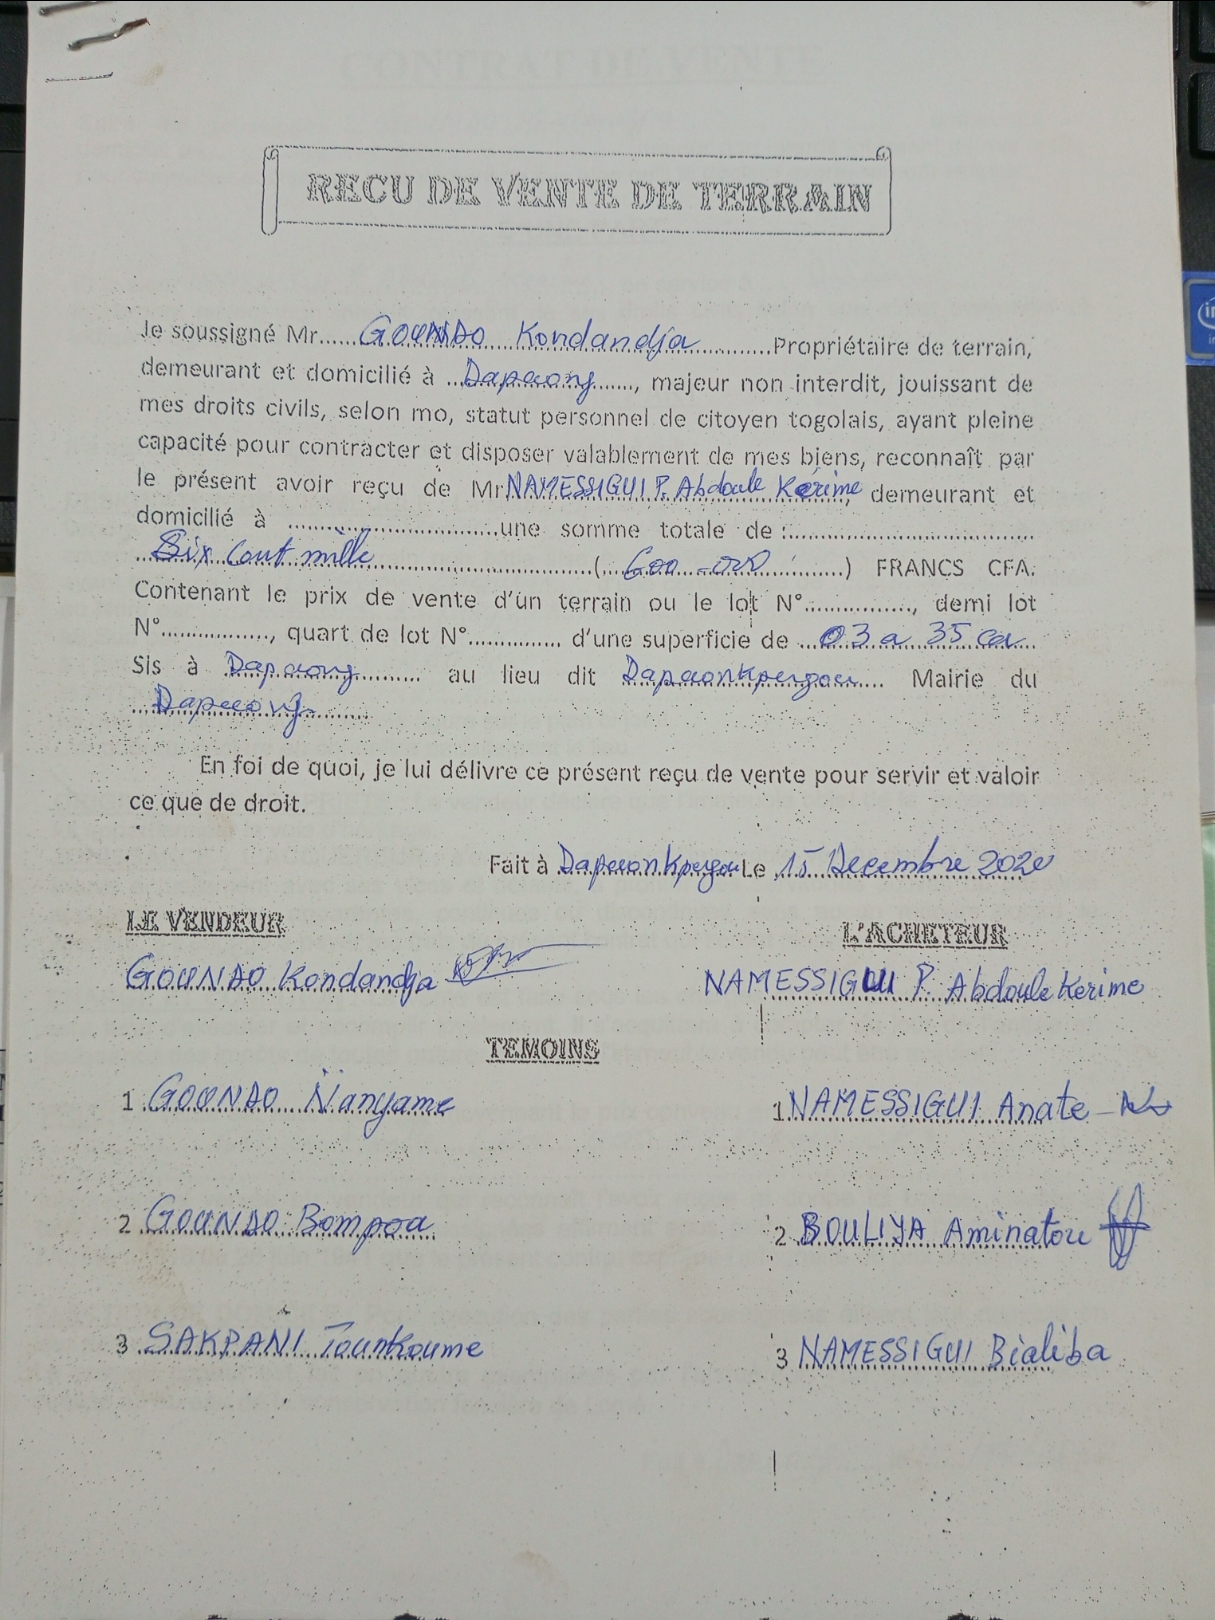 RECU DE VENTE DE TERRAIN
Je soussigné Mr......GOUNDO Kondandja............Propriétaire de terrain,
demeurant et domicilié à ...Dapaong......, majeur non interdit, jouissant de
mes droits civils, selon mo, statut personnel de citoyen togolais, ayant pleine
capacité pour contracter et disposer valablement de mes biens, reconnaît par
le présent avoir reçu de Mr NAMESSIGUI P. Abdoule Kérime, demeurant et
domicilié à ..............................une somme totale de :...................................
..Six cent mille...............................(...600 000.........) FRANCS CFA.
Contenant le prix de vente d'un terrain ou le lot N°..............., demi lot
N°..............., quart de lot N°.............. d'une superficie de ...03 a 35 ca...
Sis à Dapaong......... au lieu dit Dapaonkpergou.... Mairie du
...Dapaong.........
En foi de quoi, je lui délivre ce présent reçu de vente pour servir et valoir
ce que de droit.
Fait à Dapaonkpergou Le 15 Decembre 2020
LE VENDEUR L'ACHETEUR
GOUNDO Kondandja NAMESSIGUI P. Abdoule Kerime
TEMOINS
1 GOUNDO Nanyame 1 NAMESSIGUI Anate
2 GOUNDO Bompoa 2 BOULIYA Aminatou
3 SAKPANI Tounkoume 3 NAMESSIGUI Bialiba